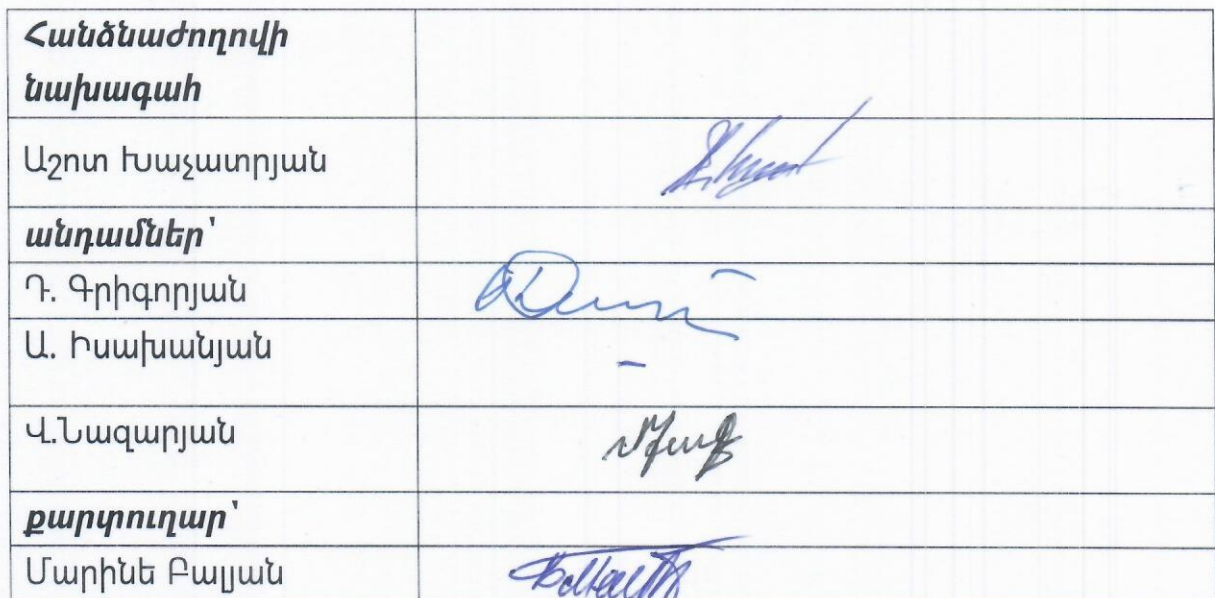 Հանձնաժողովի
նախագահ
Աշոտ Խաչատրյան
անդամներ՝
Դ. Գրիգորյան
Ա. Իսախանյան
Վ.Նազարյան
քարտուղար՝
Մարինե Բալյան